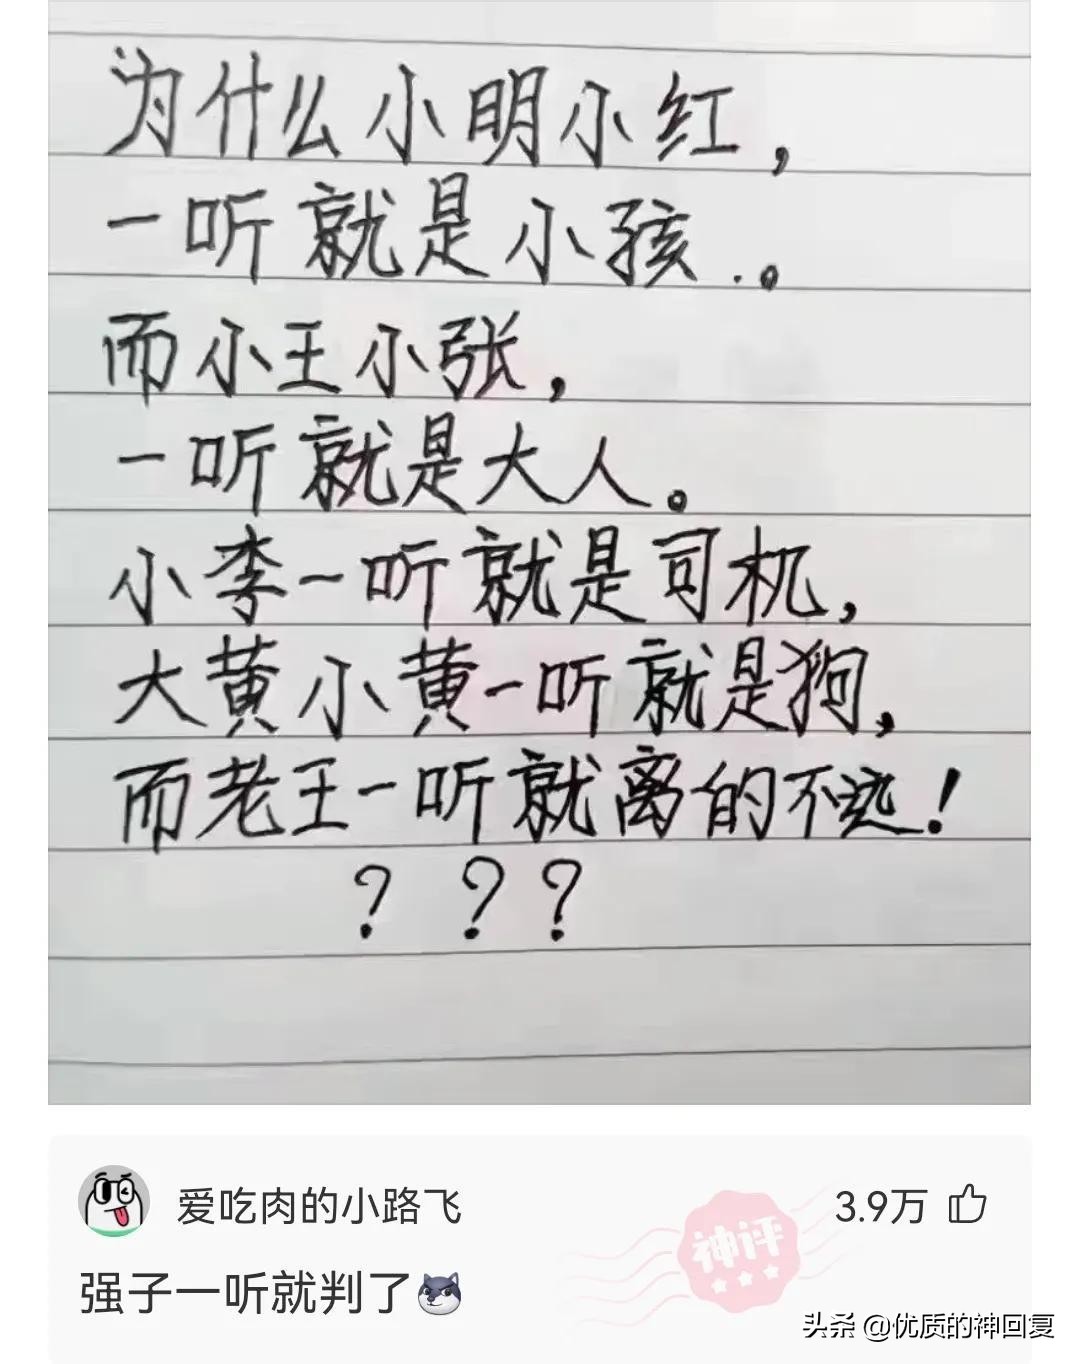 为什么小明小红，
一听就是小孩.。
而小王小张，
一听就是大人。
小李一听就是司机，
大黄小黄一听就是狗，
而老王一听就离的不远！
？？？
爱吃肉的小路飞
3.9万
神评
强子一听就判了
头条 @优质的神回复